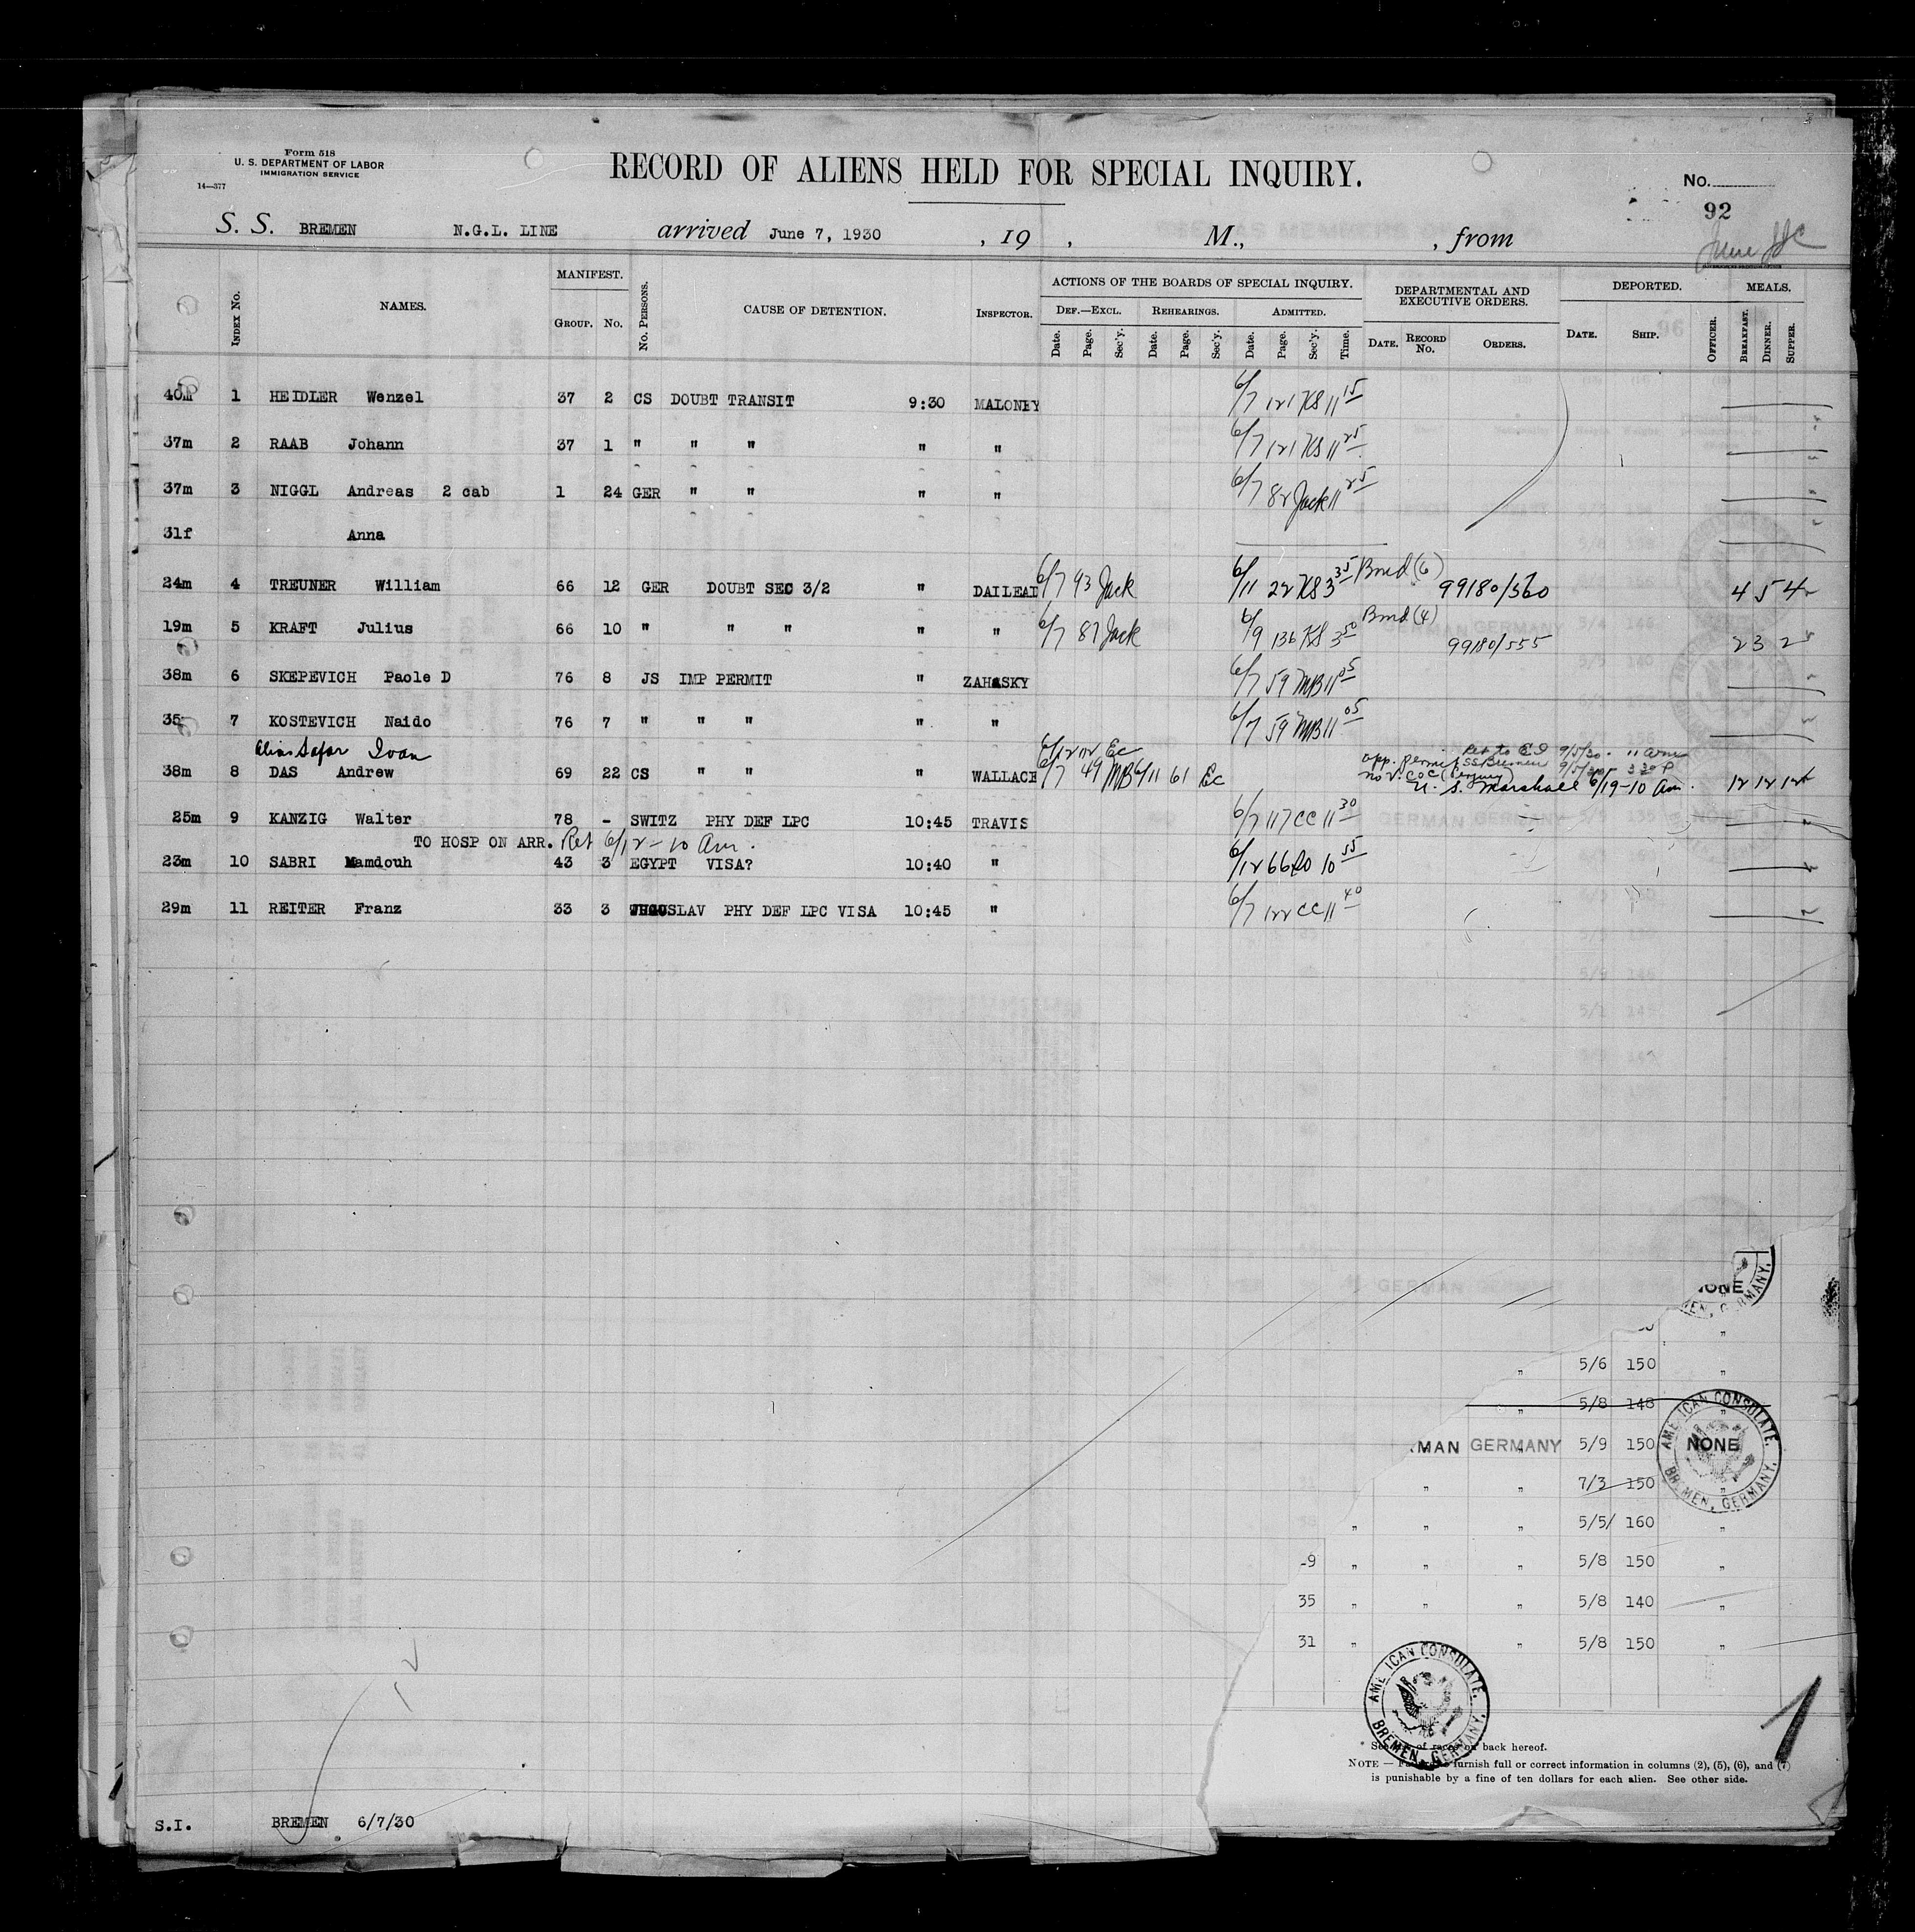 Form 518
U. S. DEPARTMENT OF LABOR
IMMIGRATION SERVICE
14—377
RECORD OF ALIENS HELD FOR SPECIAL INQUIRY.
No.
92
S. S. BREMEN N.G.L. LINE arrived June 7, 1930 , 19 , M., , from
INDEX No. NAMES. MANIFEST. GROUP. No. No. PERSONS. CAUSE OF DETENTION. INSPECTOR. ACTIONS OF THE BOARDS OF SPECIAL INQUIRY. DEF.—EXCL. Date. Page. Sec'y. REHEARINGS. Date. Page. Sec'y. ADMITTED. Date. Page. Sec'y. Time. DEPARTMENTAL AND EXECUTIVE ORDERS. DATE. RECORD No. ORDERS. DEPORTED. DATE. SHIP. OFFICER. MEALS. BREAKFAST. DINNER. SUPPER.
40m 1 HEIDLER Wenzel 37 2 CS DOUBT TRANSIT 9:30 MALONEY 6/7 121 KS 11 15
37m 2 RAAB Johann 37 1 " " " " " 6/7 121 KS 11 25
37m 3 NIGGL Andreas 2 cab 1 24 GER " " " " 6/7 82 Jack 11 25
31f Anna
24m 4 TREUNER William 66 12 GER DOUBT SEC 3/2 " DAILEAD 6/7 93 Jack 6/11 22 KS 3 35 Bond (6) 99180/560 4 5 4
19m 5 KRAFT Julius 66 10 " " " " " 6/7 87 Jack 6/9 136 KS 3 50 Bond (4) 99180/555 2 3 2
38m 6 SKEPEVICH Paole D 76 8 JS IMP PERMIT " ZAHASKY 6/7 59 MB 11 05
35 7 KOSTEVICH Naido 76 7 " " " " " 6/7 59 MB 11 05
Alias Safar Ivan 6/12 112 Ec Ret to E I 9/5/30 11 am
38m 8 DAS Andrew 69 22 CS " " " WALLACE 6/7 49 MB 6/11 61 Ec app. permit SS Bremen 9/5/30 3 30 P
no V. C O C (Perjury) U. S. Marshall 6/19-10 am. 12 12 12
25m 9 KANZIG Walter 78 - SWITZ PHY DEF LPC 10:45 TRAVIS 6/7 117 CC 11 30
TO HOSP ON ARR. Ret 6/12 - 10 am.
23m 10 SABRI Mamdouh 43 3 EGYPT VISA? 10:40 " 6/12 66 10 55
29m 11 REITER Franz 33 3 JUGOSLAV PHY DEF LPC VISA 10:45 " 6/7 122 CC 11 40
NONE
EN, GERMANY.
" 5/6 150 "
" 5/8 148 "
MAN GERMANY 5/9 150 NONE
AMERICAN CONSULATE. BREMEN, GERMANY.
" " 7/3 150 "
" " " 5/5/ 160 "
9 " " " 5/8 150 "
35 " " " 5/8 140 "
31 " " 5/8 150 "
AMERICAN CONSULATE. BREMEN, GERMANY.
1
of races on back hereof.
NOTE — furnish full or correct information in columns (2), (5), (6), and (7)
is punishable by a fine of ten dollars for each alien. See other side.
S.I. BREMEN 6/7/30